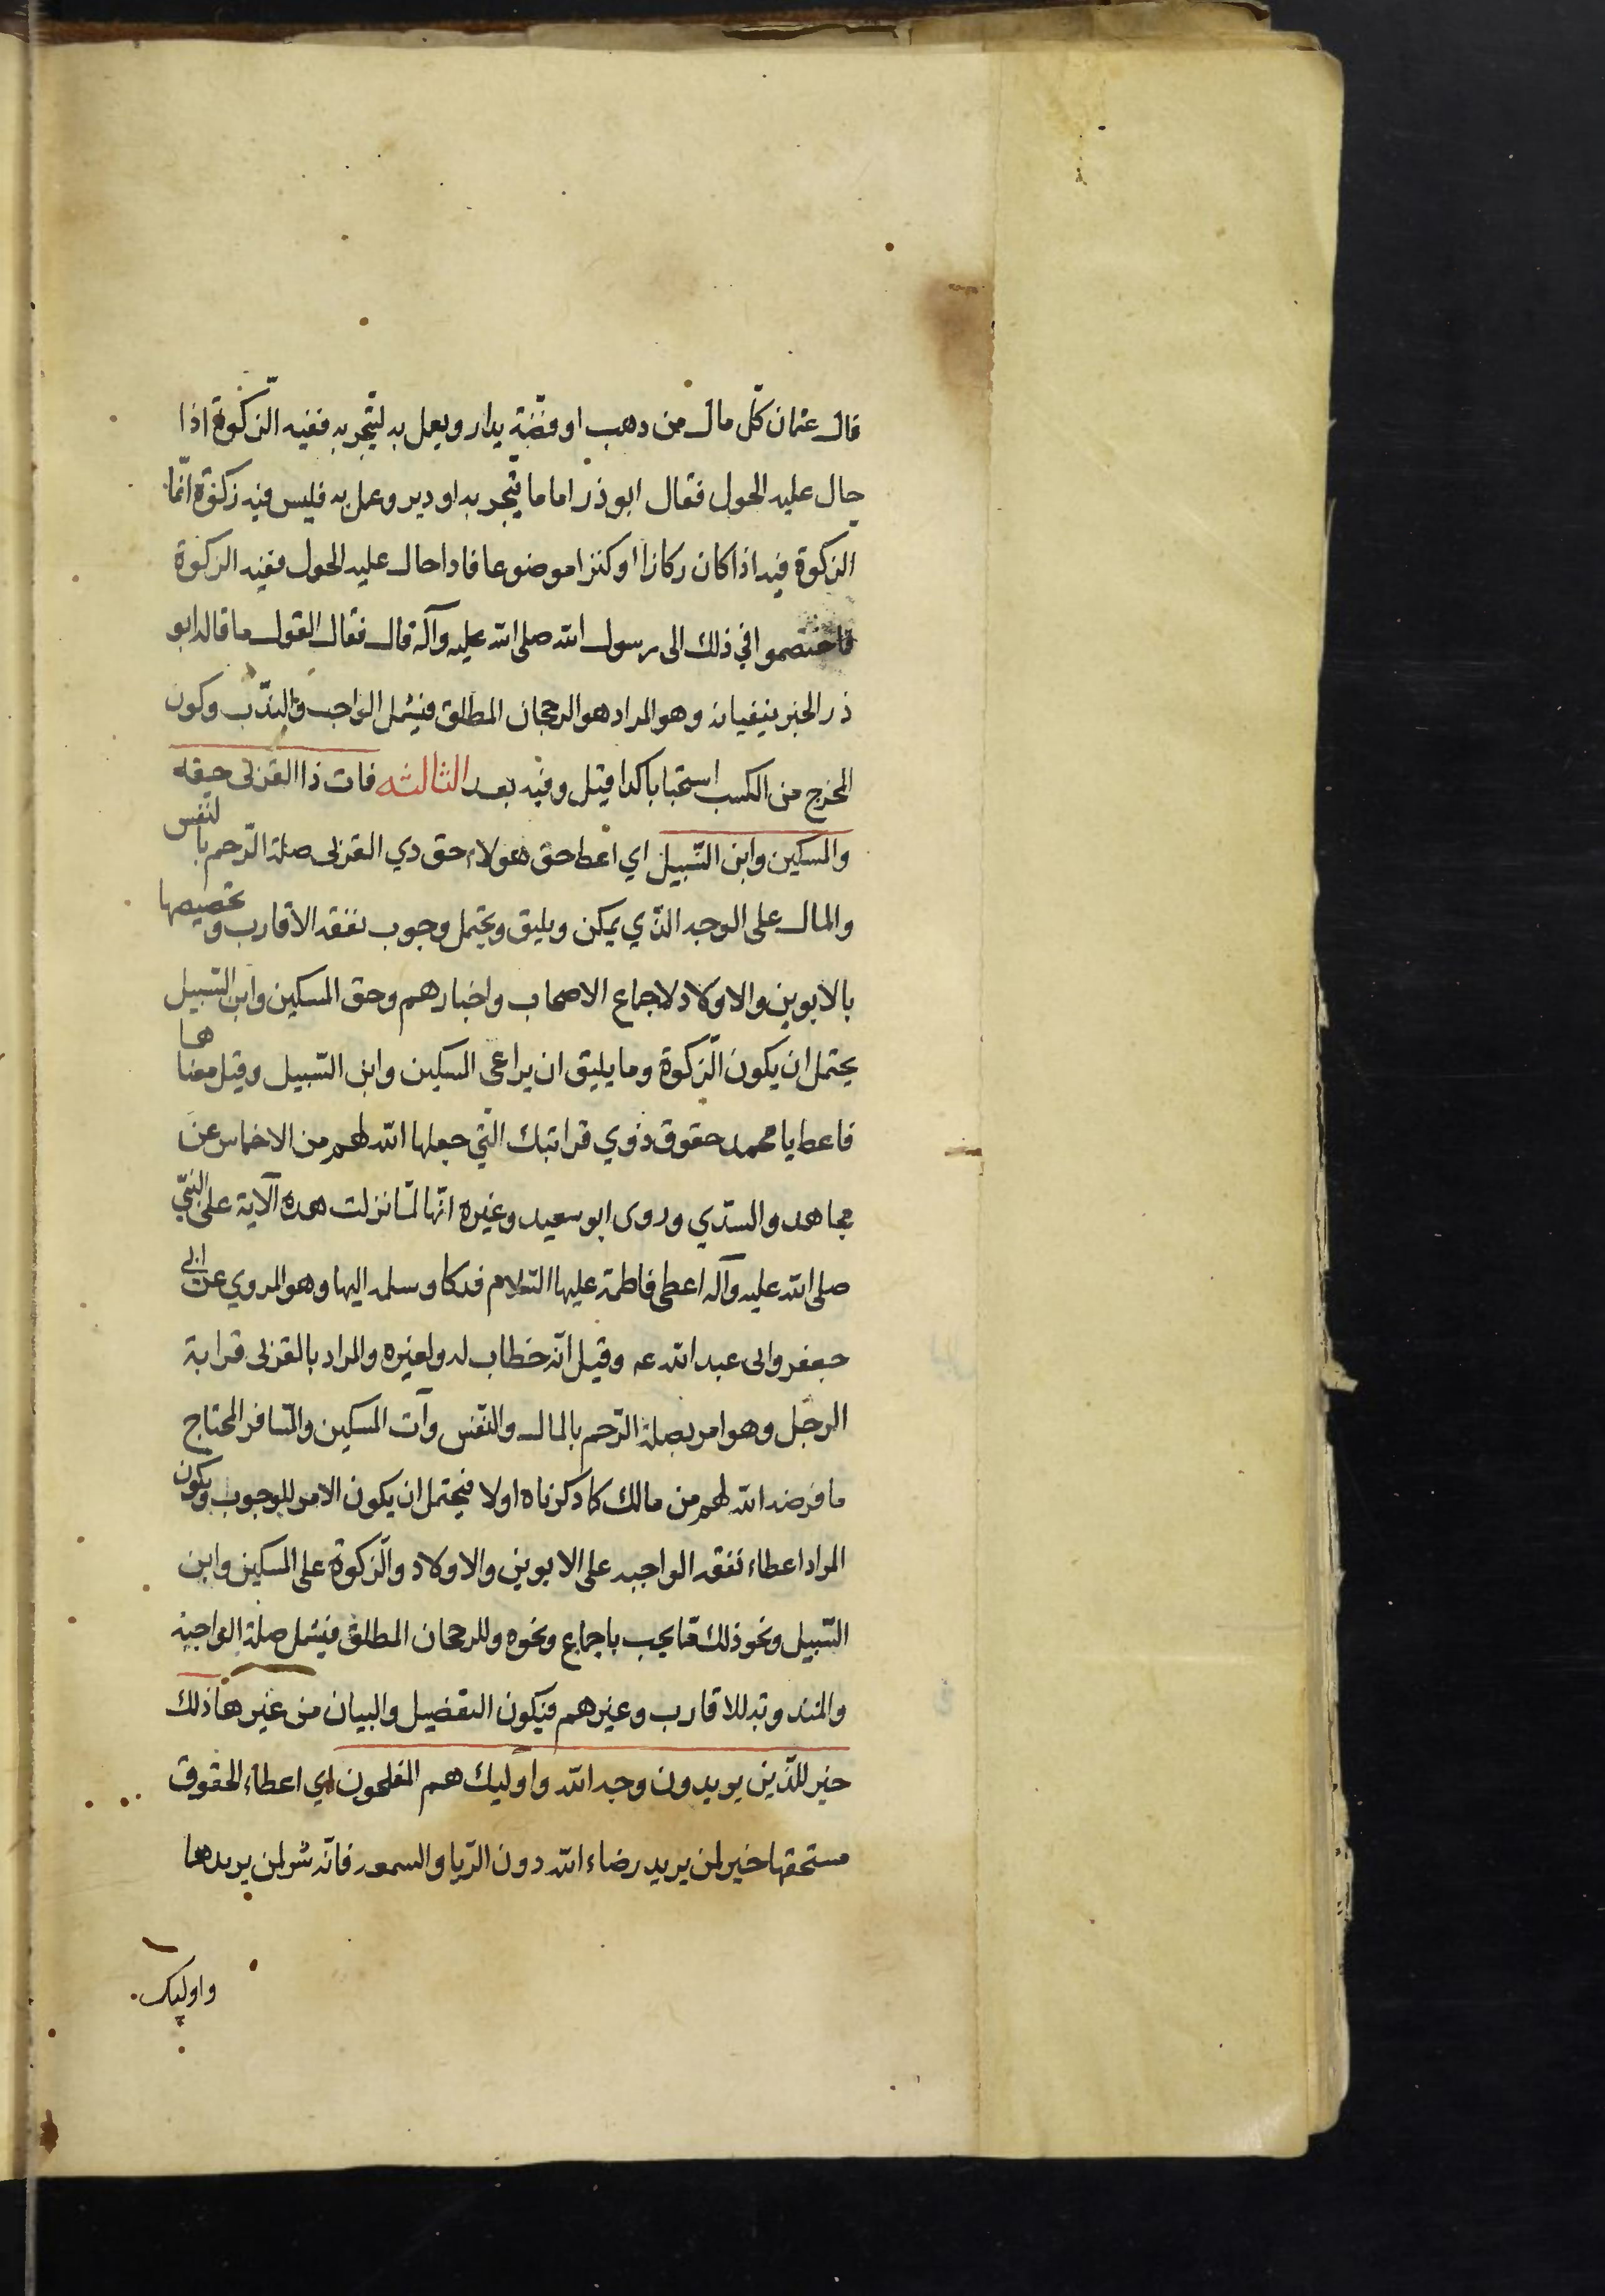 قال عثمان كلّ مال من دهب او فضّة يدار ويعمل به ليتّجر به ففيه الزّكوة اذا
حال عليه الحول فقال ابو ذر اما ما يتّجر به او دير وعمل به فليس فيه زكوة انّما
الزكوة فيه اذا كان ركازا او كنزا موضوعا فاداحال عليه الحول ففيه الزكوة
فاختصموا في ذلك الى رسول الله صلى الله عليه وآله قال فقال القول ما قاله ابو
ذر الخبر ينفيانه وهو المراد هو الرجحان المطلق فيشمل الواجب والندّب وكون
المخرج من الكسب استحبابا كدا قيل وفيه بعد الثالثه فات ذا القربى حقه
والمسكين وابن السّبيل اي اعط حق هولاء حق دي القربى صلة الرّحم با لنفس
والمال على الوجه الذّي يمكن ويليق ويحتمل وجوب نفقه الاقارب و تخصيصها
بالابوين والاولاد لاجماع الاصحاب واخبارهم وحق المسكين وابن السّبيل
يحتمل ان يكون الزّكوة وما يليق ان يراعى المسكين وابن السّبيل وقيل معنا ها
فاعط يا محمد حقوق ذوي قرابتك التّي جعلها الله لهم من الاخماس عن
مجاهد والسدّي وروى ابو سعيد وغيره انّها لمّا نزلت هده الآية على النبّي
صلى الله عليه وآله اعطى فاطمة عليها السّلام فدكا وسلمه اليها وهو المروي عن ابي
جعفر وابى عبد الله عه وقيل انّه خطاب له ولغيره والمراد بالقربى قرابة
الرجل وهو امر بصلة الرّحم بالمال والنّفس وآت المسكين والمسافر المحتاج
ما فرضه الله لهم من مالك كما دكرناه اولا فيحتمل ان يكون الامر للوجوب ويكون
المراد اعطاء نفقه الواجبه على الابوين والاولاد والزّكوة على المسكين وابن
السّبيل ونحو ذلك ممّا يجب باجماع ونحوه وللرجحان المطلق فيشمل صلة الواجبة
والمندوبة للاقارب وغيرهم فيكون التفضيل والبيان من غيرها ذلك
خير للذّين يريدون وجه الله واوليك هم المفلحون اي اعطاء الحقوق
مستحقها خير لمن يريد رضاء الله دون الرّيا والسمعه فانّه شر لمن يريدها
واوليك